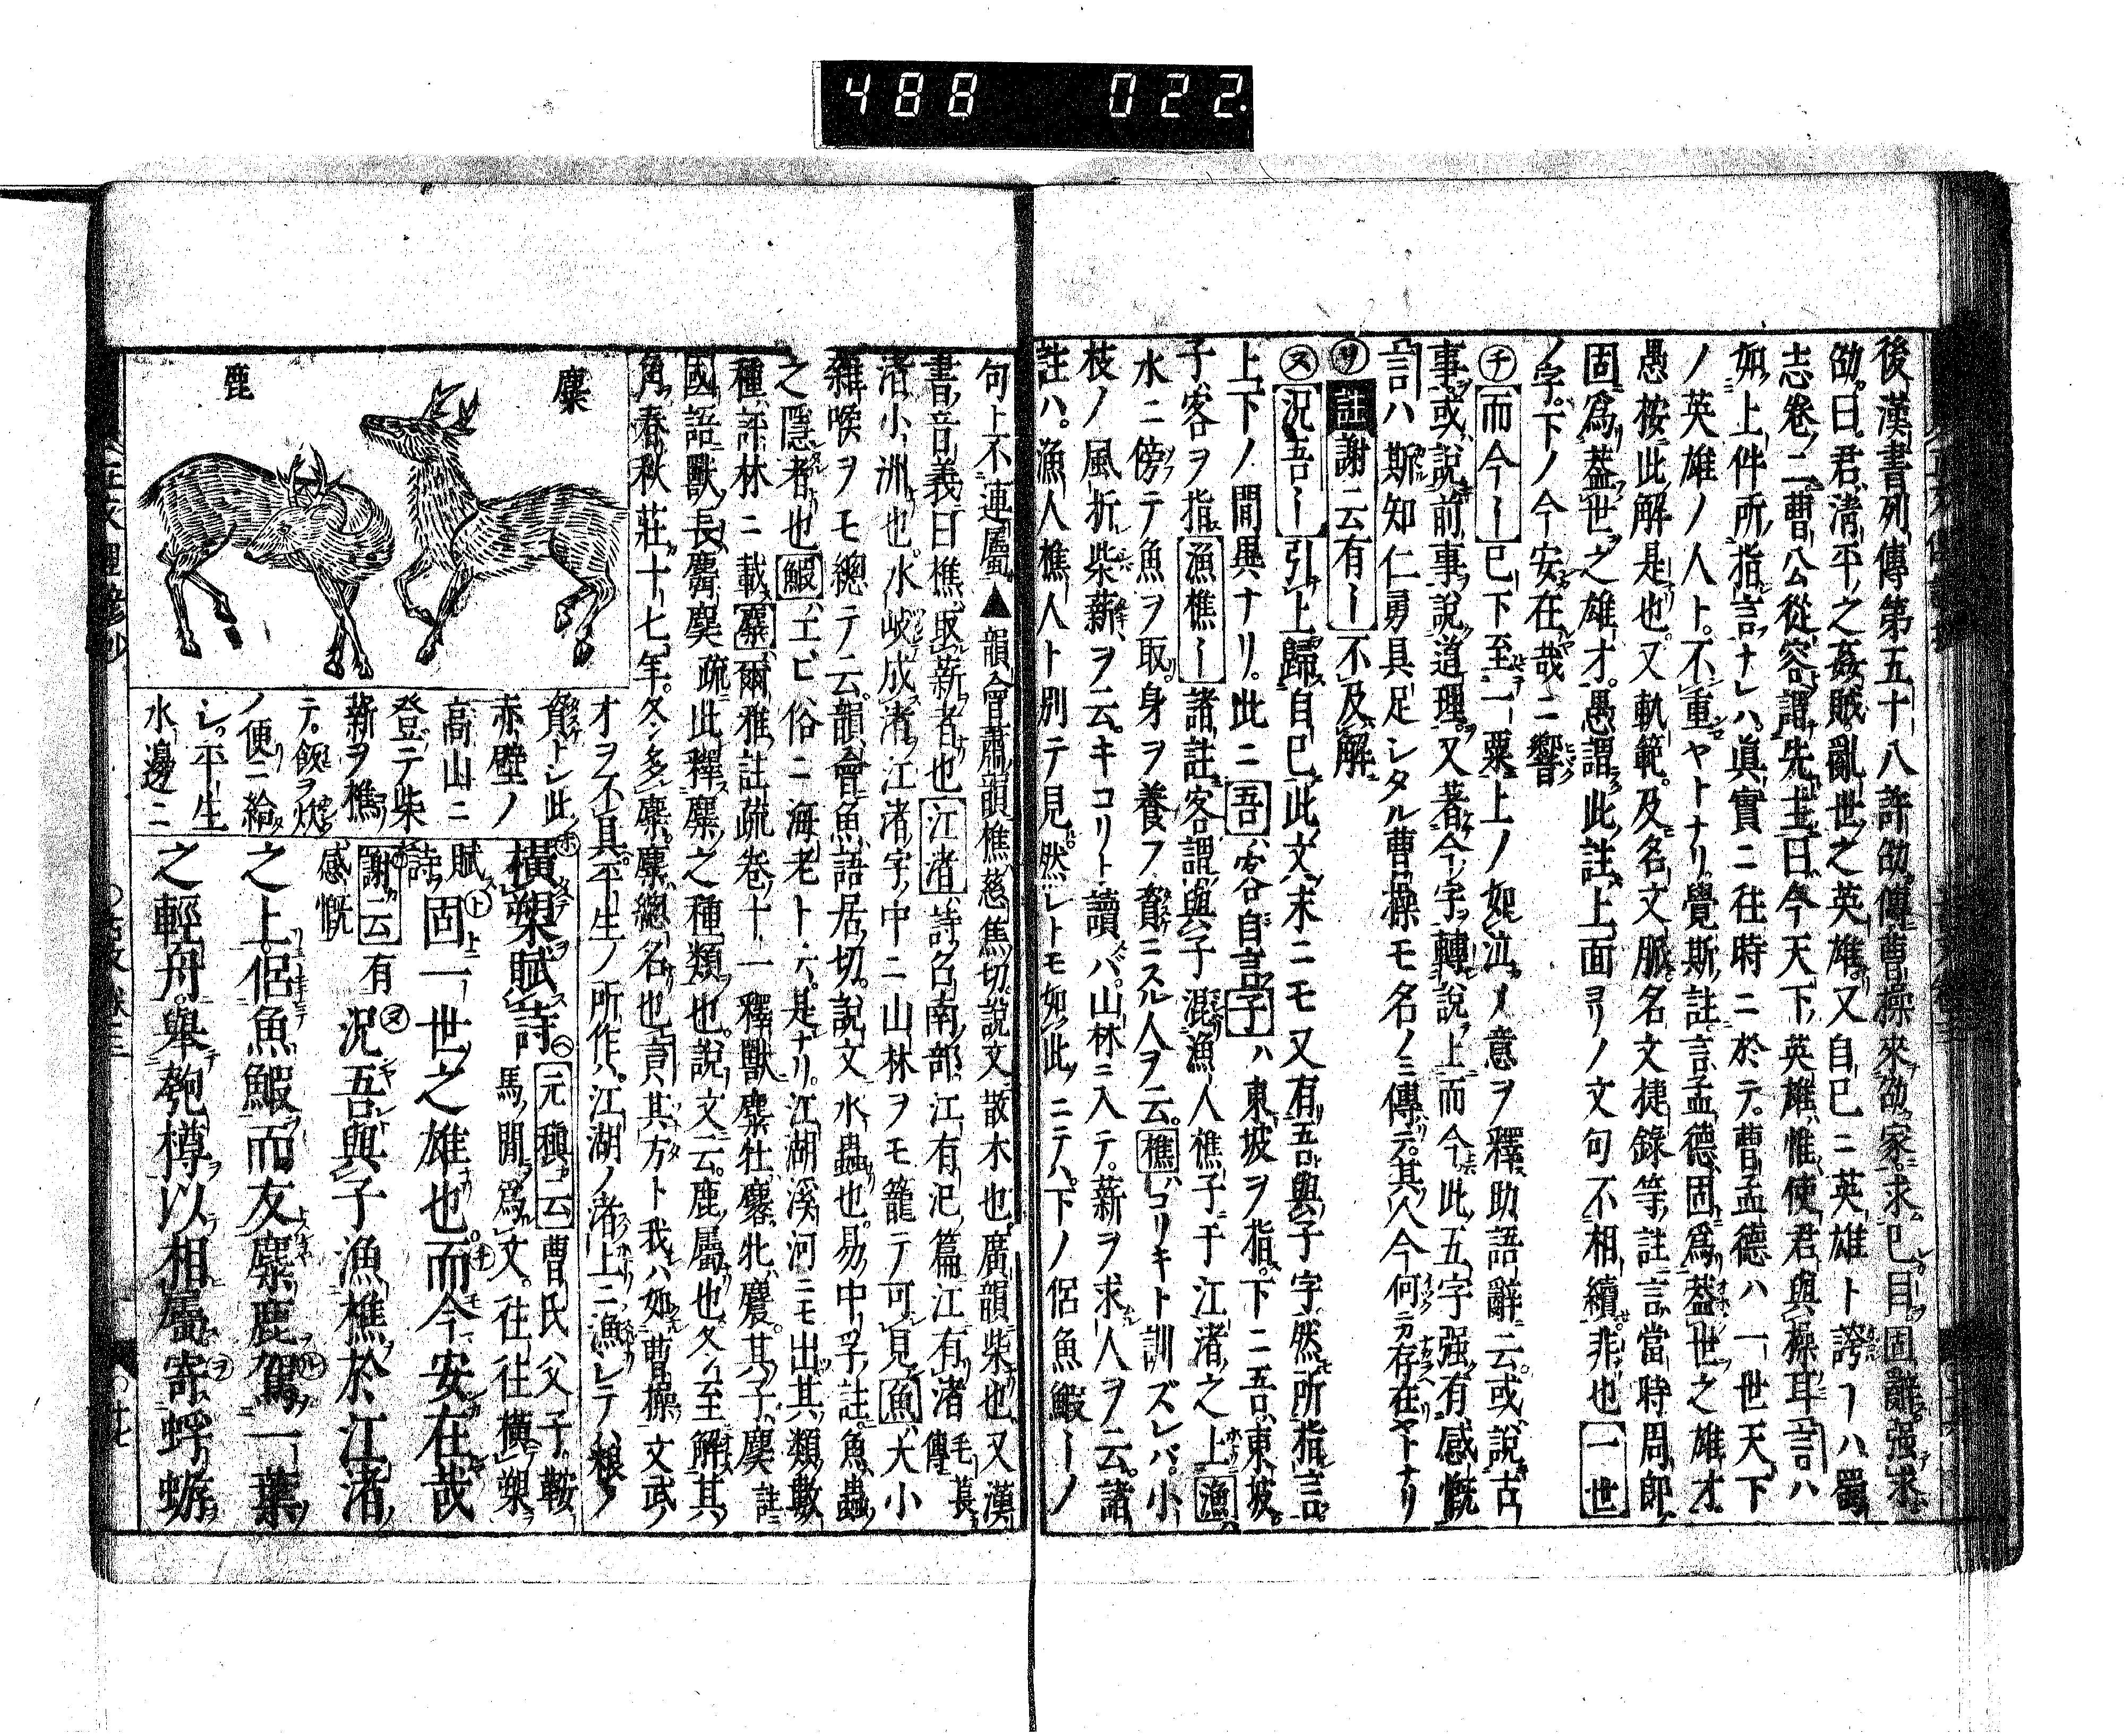 488 022.
後漢書列傳第五十八許劭傳曹操來劭家求己目固辭強求
劭曰君清平之姦賊亂世之英雄又自己ニ英雄ト誇ーハ蜀
志卷二曹公從容謂先主曰今天下英雄惟使君與操耳言ハ
如上件所指言ナレハ眞實ニ往時ニ於テ曹孟德ハ一世天下
ノ英雄ノ人ト不重ヤトナリ覺斯註言孟德固爲蓋世之雄才
愚桉此解是也又軌範及名文脈名文捷錄等註言當時周郎
固爲蓋世之雄才愚謂此註上面ヨリノ文句不相續非也一世
ノ字下ノ今安在哉ニ響
チ而今ー已下至一粟上ノ如泣ノ意ヲ釋助語辭云或說古
事或說前事說道理又著今字轉說上而今此五字强有感慨
言ハ斯知仁勇具足シタル曹操モ名ノミ傳テ其人今何ニカ存在ヤトナリ
リ註謝云有ー不及解
ヌ況吾ー引上歸自已此文末ニモ又有吾與子字然所指言
上下ノ間異ナリ此ニ吾客自言子ハ東坡ヲ指下ニ吾東坡
子客ヲ指漁樵ー諸註客謂與子混漁人樵子于江渚之上漁
水ニ傍テ魚ヲ取身ヲ養フ資ニスル人ヲ云樵コリキト訓ズレバ小
枝ノ風折柴薪ヲ云キコリト讀バ山林ニ入テ薪ヲ求人ヲ云諸
註ハ漁人樵人ト別テ見然レトモ如此ニテハ下ノ侶魚鰕ーノ
句上不連屬▲韻會蕭韻樵慈焦切說文散木也廣韻柴也又漢
書音義曰樵取薪者也江渚詩召南部江有汜篇江有渚毛萇傳
渚小洲也水岐成渚江渚字中ニ山林ヲモ籠テ可見魚大小
雜喉ヲモ總テ云韻會魚語居切說文水蟲也易中孚註魚蟲
之隱者也鰕エビ俗ニ海老ト云是ナリ江湖溪河ニモ出其類數
種詳林ニ載麋爾雅註疏卷十一釋獸麋牡麔牝麎其子麌註
國語獸長麛麌疏此釋麋之種類也說文云鹿屬也冬至解其
角春秋莊十七年冬多麋麋總名也言其方ト我ハ如曹操文武
才ヲ不具平生ノ所作江湖ノ渚上ニ漁シテハ粮ノ
麋
鹿
資トシ此
赤壁ノ
高山ニ
登テ柴
薪ヲ樵
テ飯ヲ炊
ノ便ニ給
シ平生
水邊ニ
ホ橫槊賦詩ヘ元稹云曹氏父子鞍
馬間爲文往往橫槊
賦詩ト固一世之雄也チ而今安在哉
リ謝云有
感慨ヌ況吾與子漁樵於江渚
之上侶魚鰕而友麋鹿ル駕一葉
之輕舟擧匏樽以相屬ヲ寄蜉蝣